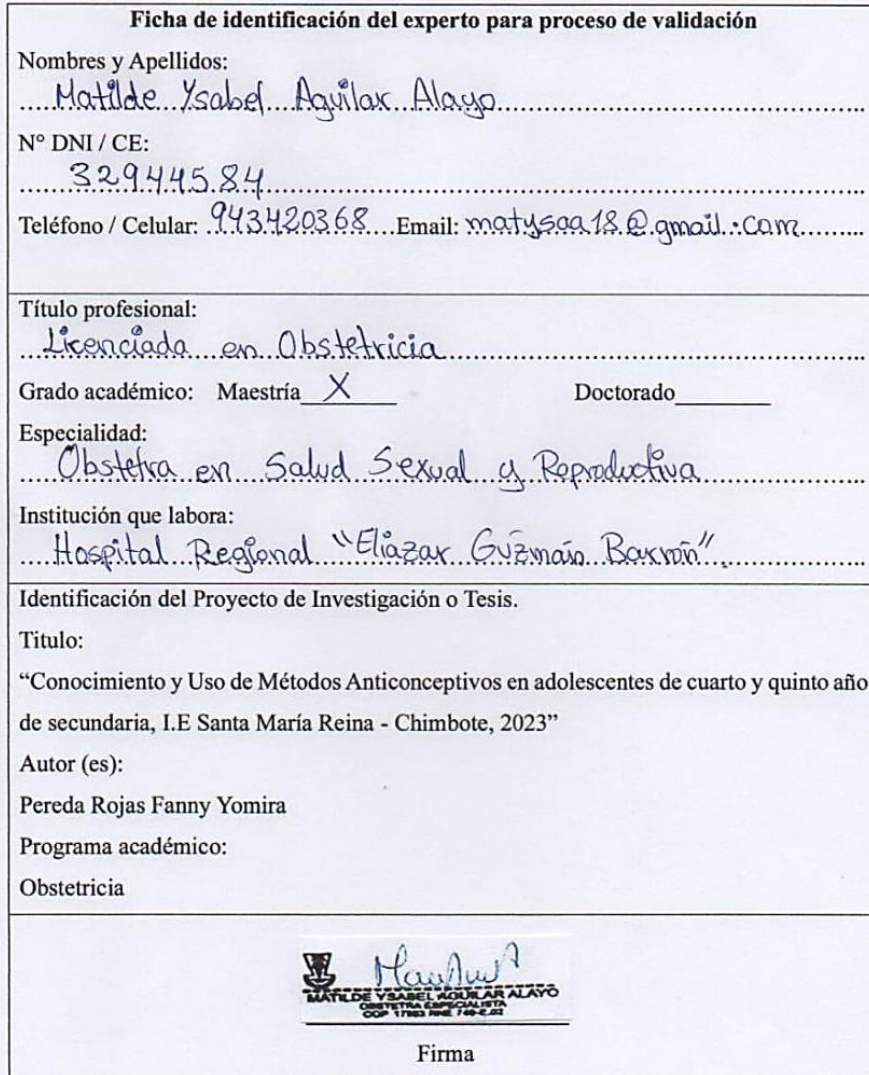 Ficha de identificación del experto para proceso de validación
Nombres y Apellidos:
Matilde Ysabel Aguilar Alayo
N° DNI / CE:
32944584
Teléfono / Celular: 943420368 Email: matysaa18@gmail.com
Título profesional:
Licenciada en Obstetricia
Grado académico: Maestría X Doctorado
Especialidad:
Obstetra en Salud Sexual y Reproductiva
Institución que labora:
Hospital Regional "Eliazar Guzmán Barrón".
Identificación del Proyecto de Investigación o Tesis.
Titulo:
“Conocimiento y Uso de Métodos Anticonceptivos en adolescentes de cuarto y quinto año
de secundaria, I.E Santa María Reina - Chimbote, 2023”
Autor (es):
Pereda Rojas Fanny Yomira
Programa académico:
Obstetricia
MATILDE YSABEL AGUILAR ALAYO
OBSTETRA ESPECIALISTA
COP
Firma